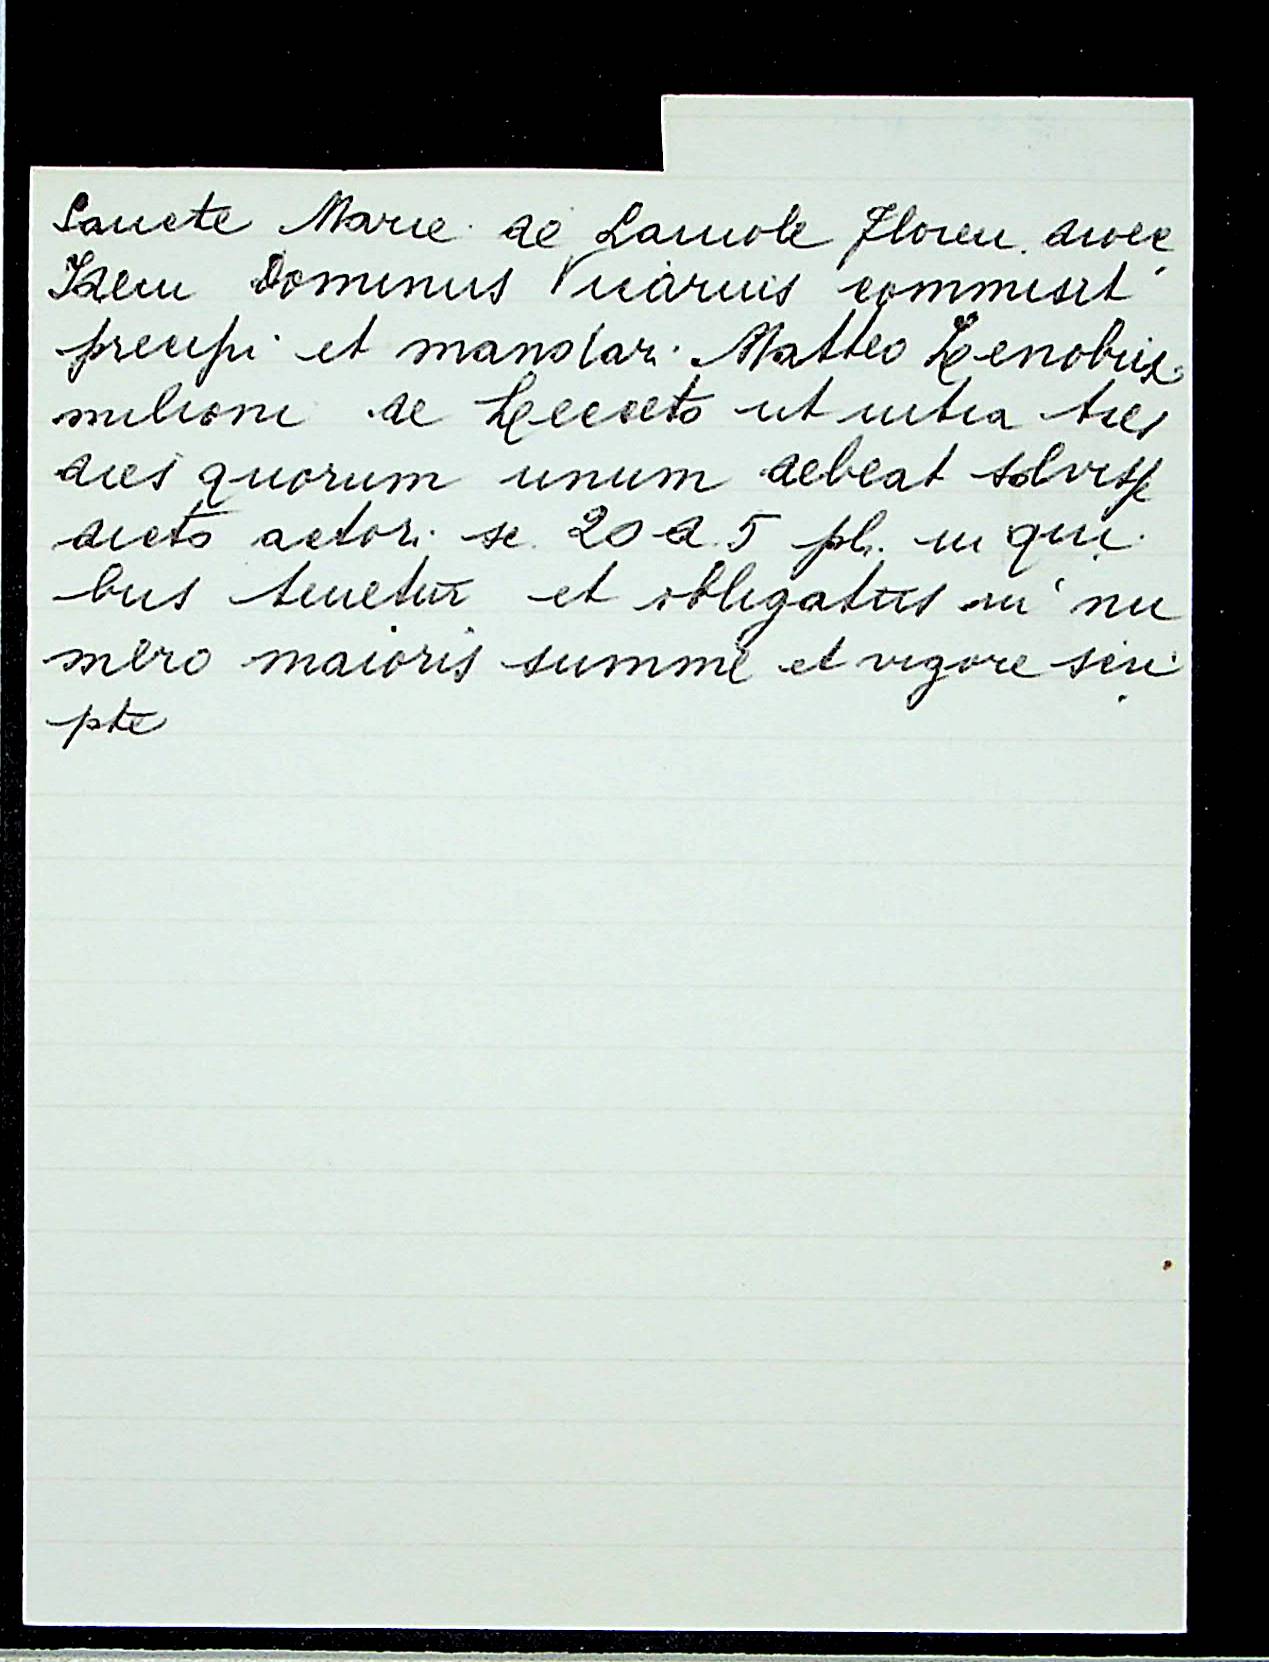 Sancte Marie de Lamole Floren. dioec
Idem Dominus Vicarius commisit
precipi et mandari Matteo Zenobii
milioni de Lecceto ut intra tres
dies quorum unum debeat solvisse
dicto actori sc. 20 d. 5 pl. in qui
bus tenetur et obligatus in nu
mero maioris summe et vigore scri
pte